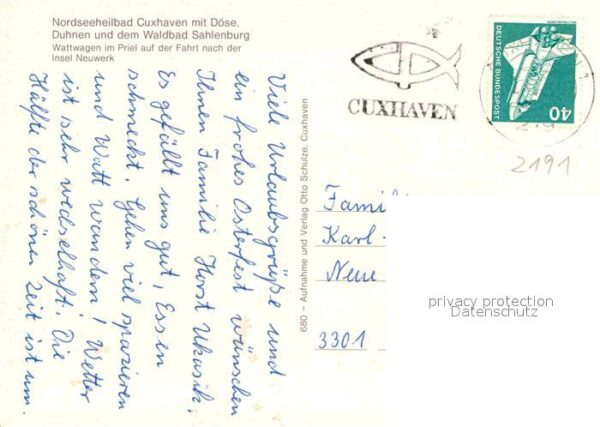 Nordseeheilbad Cuxhaven mit Döse,
Duhnen und dem Waldbad Sahlenburg
Wattwagen im Priel auf der Fahrt nach der
Insel Neuwerk
Viele Urlaubsgrüße und
ein frohes Osterfest wünschen
Ihnen Familie Horst
Es gefällt uns gut, Essen
schmeckt. Gehen viel spazieren
und Watt wandern! Wetter
ist sehr wechselhaft. Die
Hälfte der schönen Zeit ist um.
680 – Aufnahme und Verlag Otto Schulze, Cuxhaven
CUXHAVEN
DEUTSCHE BUNDESPOST
40
2191
Famil
Karl-
Neue
3301
privacy protection
Datenschutz